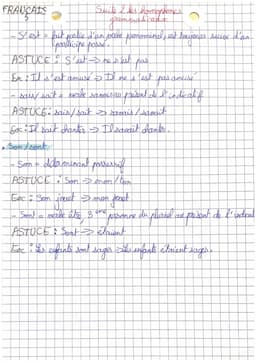 FRANÇAIS Suite 2 des homophones
5 grammaticaux
- S'est = fait partie d'un verbe pronominal, est toujours suivi d'un
participe passé.
ASTUCE : S'est => ne s'est pas
Ex : Il s'est amusé => Il ne s'est pas amusé
- sais/sait = verbe savoir au présent de l'indicatif
ASTUCE : sais/sait => savais/savait
Ex : Il sait chanter => Il savait chanter.
• Son/sont
- Son = déterminant possessif
ASTUCE : Son => mon/ton
Ex : Son jouet => mon jouet
- Sont = verbe être, 3ème personne du pluriel au présent de l'indicatif
ASTUCE : Sont => étaient
Ex : Les enfants sont sages => Les enfants étaient sages.